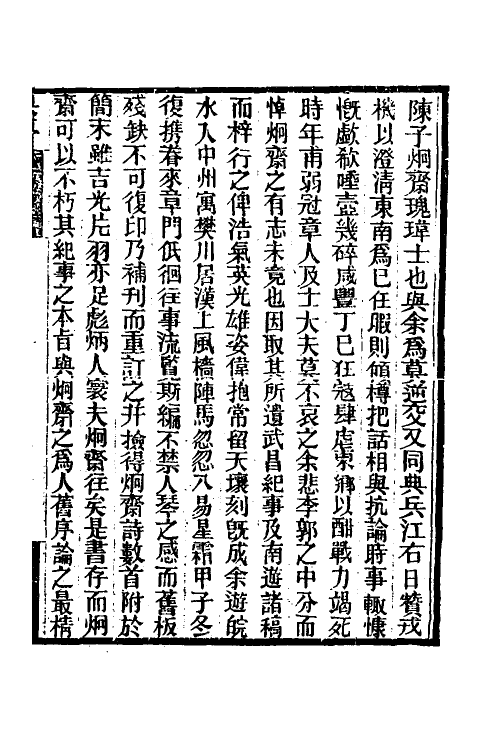 陳子炯齋瑰瑋士也與余爲莫逆交又同典兵江右日贊戎
機以澄清東南爲已任暇則傾樽把話相與抗論時事輒慷
慨歔欷唾壺幾碎咸豐丁巳狂寇肆虐東鄉以酣戰力竭死
時年甫弱冠章人及士大夫莫不哀之余悲李郭之中分而
悼炯齋之有志未竟也因取其所遺武昌紀事及南遊諸稿
而梓行之俾浩氣英光雄姿偉抱常留天壤刻旣成余遊皖
水入中州寓樊川居漢上風檣陣馬忽忽八易星霜甲子冬
復擕眷來章門低徊往事流覽斯編不禁人琴之感而舊板
殘缺不可復印乃補刊而重訂之幷撿得炯齋詩數首附於
簡末雖吉光片羽亦足彪炳人寰夫炯齋往矣是書存而炯
齋可以不朽其紀事之本旨與炯齋之爲人舊序論之最精